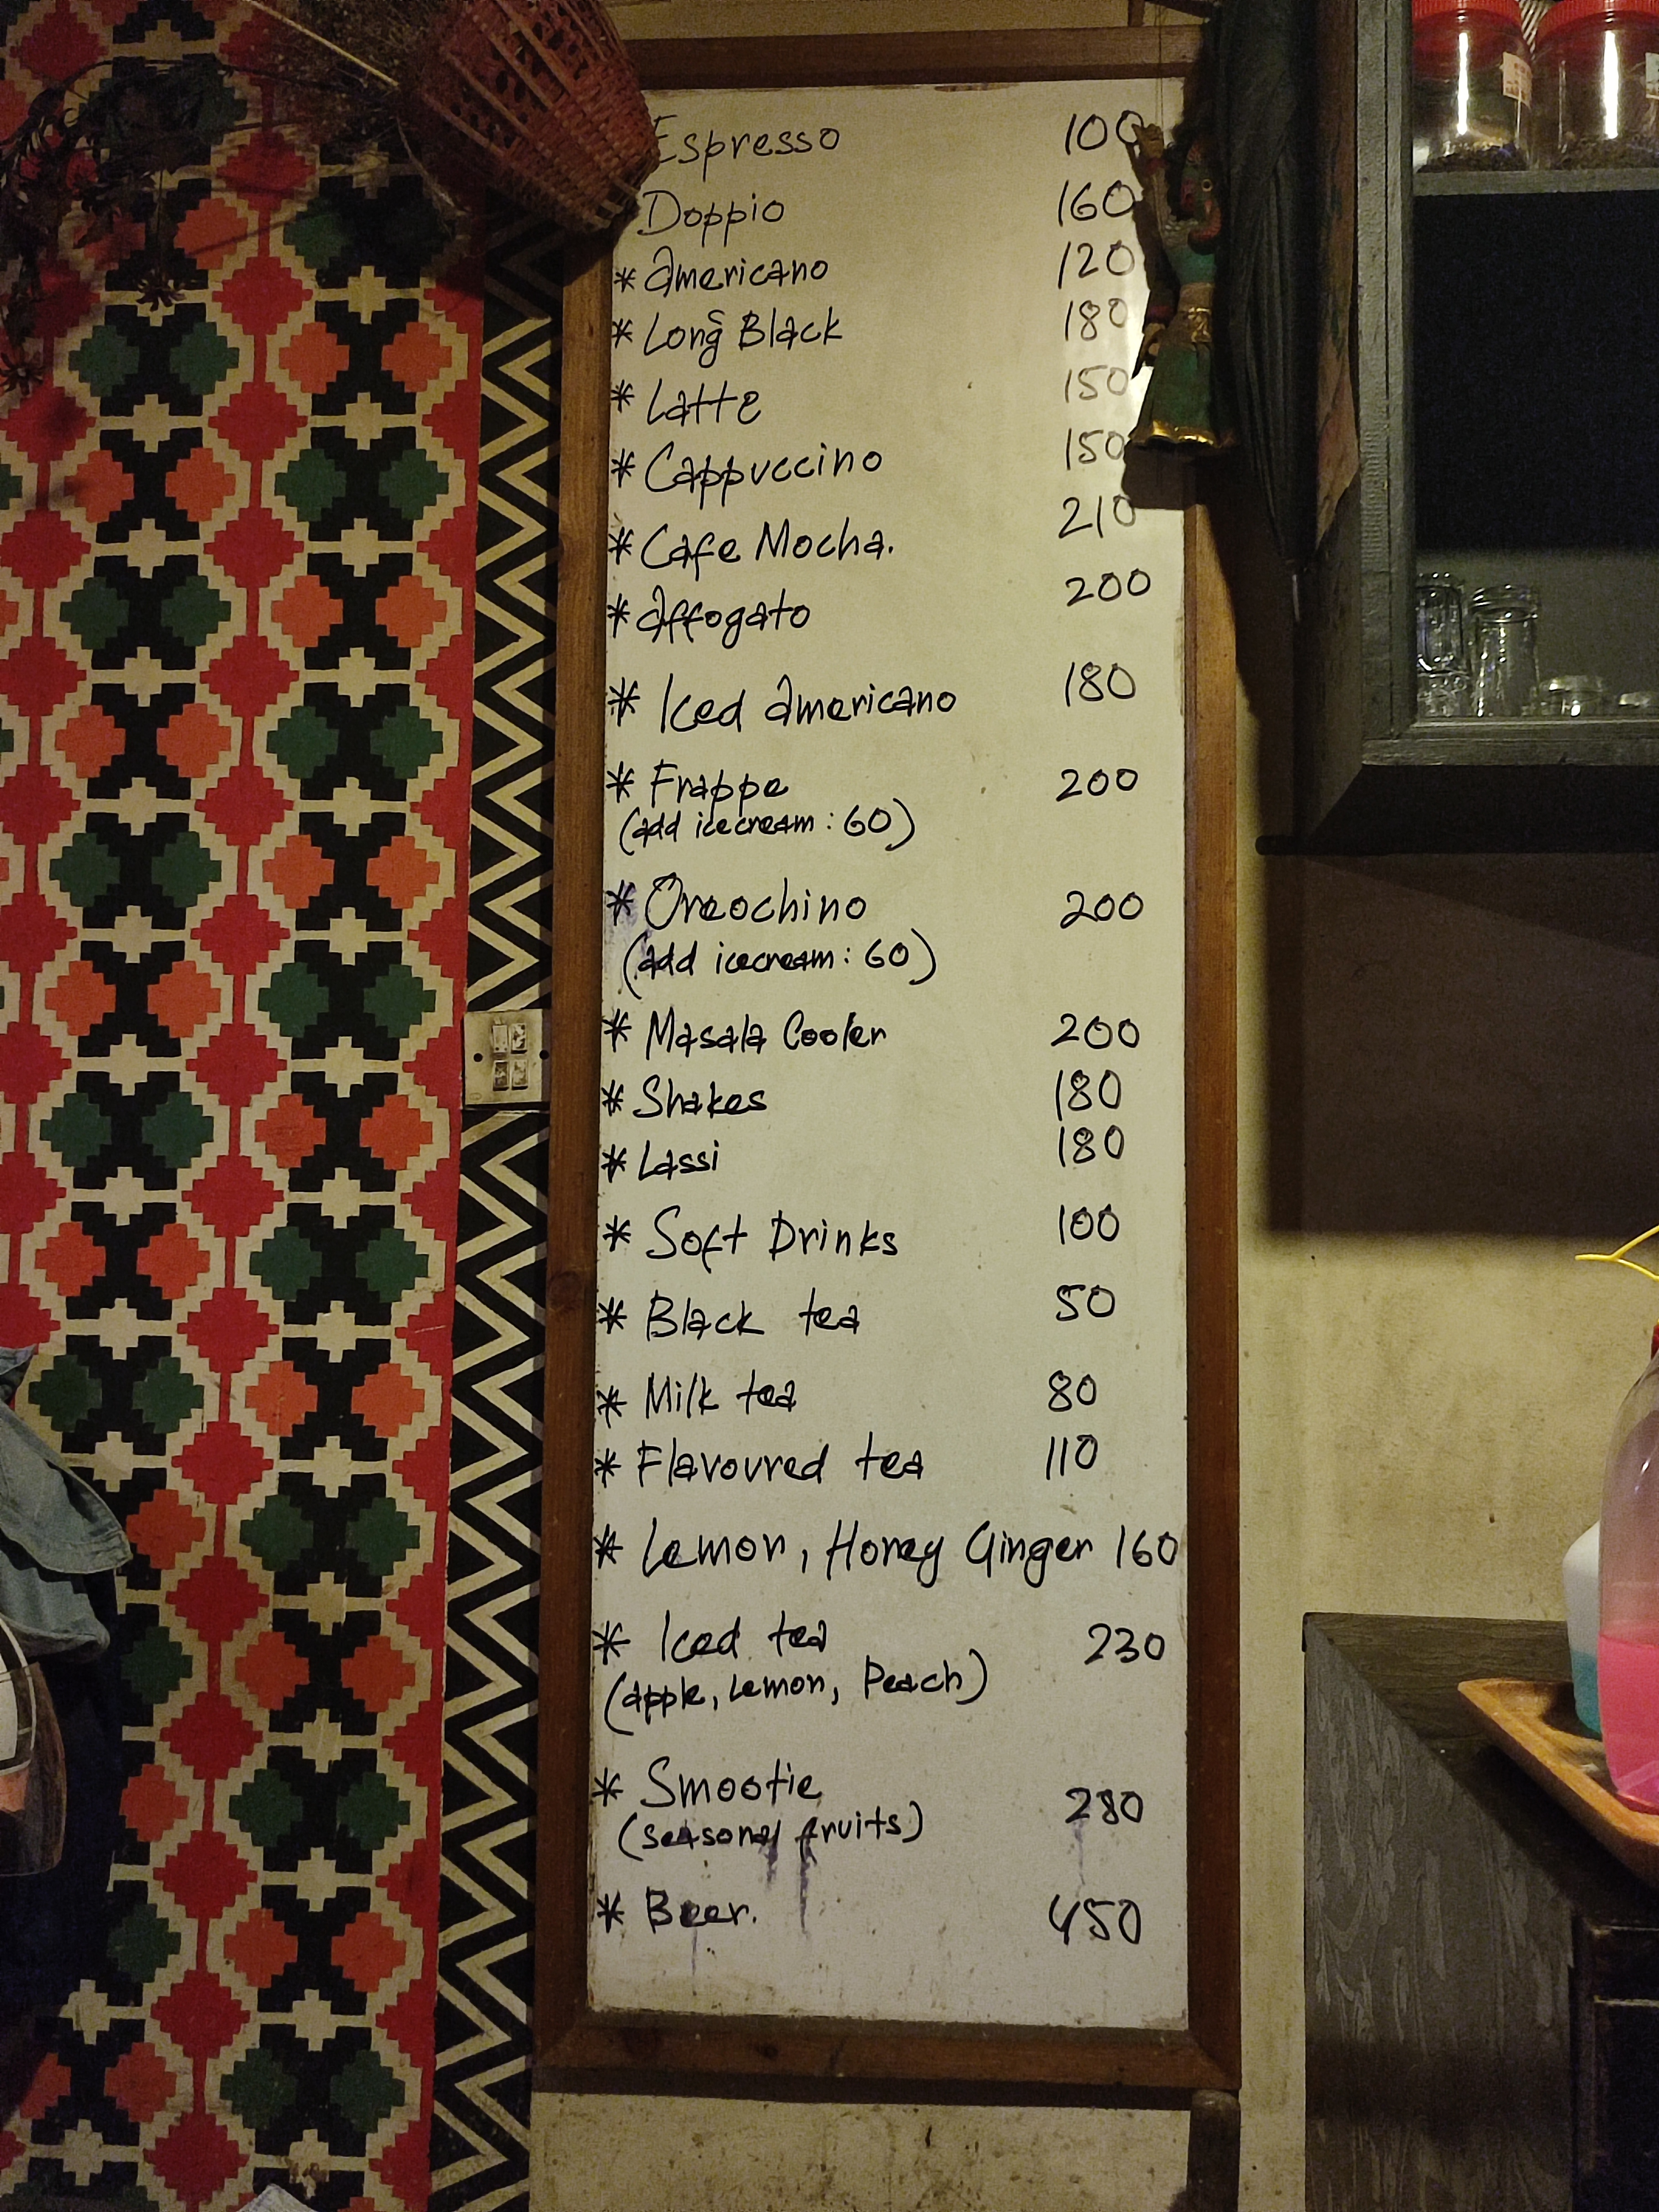 Espresso 100
Doppio 160
* Americano 120
* Long Black 180
* Latte 150
* Cappuccino 150
* Cafe Mocha. 210
* Affogato 200
* Iced Americano 180
* Frappe 200
(add icecream : 60)
* Oreochino 200
(add icecream : 60)
* Masala Cooler 200
* Shakes 180
* Lassi 180
* Soft Drinks 100
* Black tea 50
* Milk tea 80
* Flavoured tea 110
* Lemon, Honey Ginger 160
* Iced tea 230
(apple, Lemon, Peach)
* Smootie 280
(seasonal fruits)
* Beer. 450